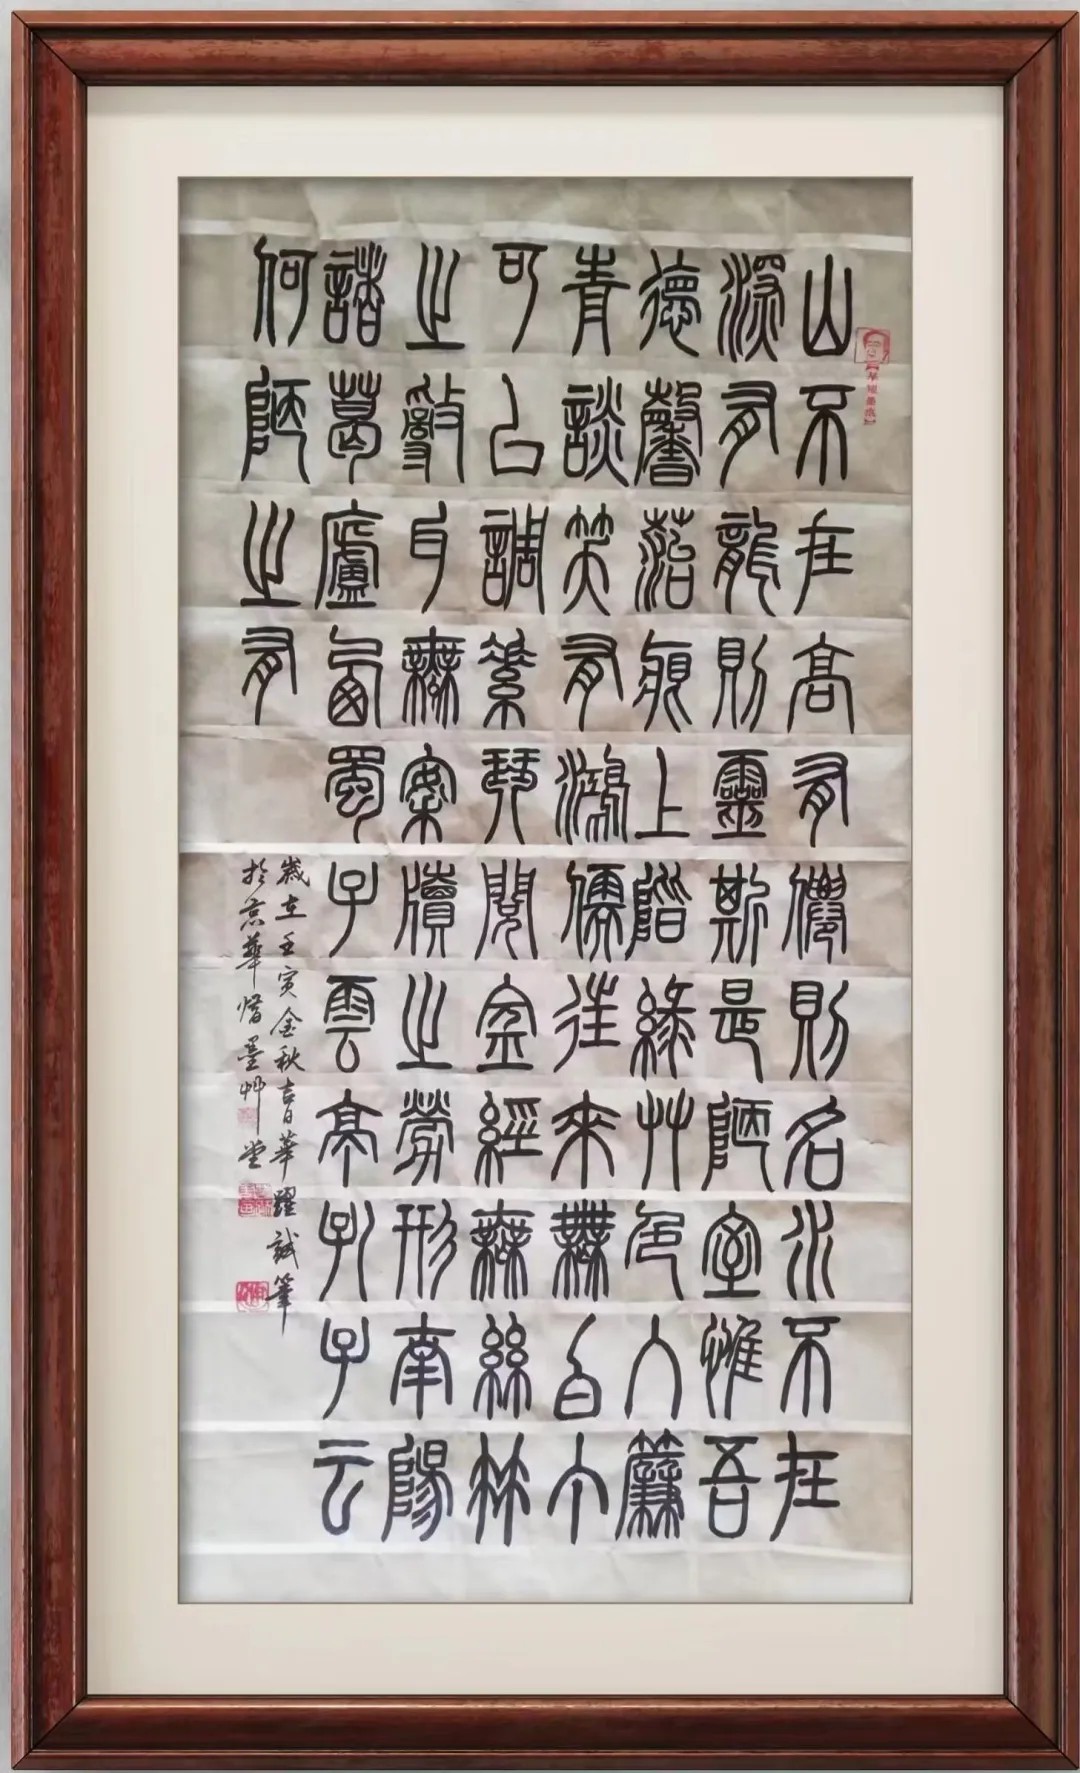 山不在高有僊則名水不在
深有龍則靈斯是陋室惟吾
德馨菭痕上階綠艸色入簾
青談笑有鴻儒往來無白丁
可以調素琴閱金經無絲竹
之亂耳無案牘之勞形南陽
諸葛廬西蜀子雲亭孔子云
何陋之有
歲在壬寅金秋吉日華躍試筆
於京華惜墨艸堂